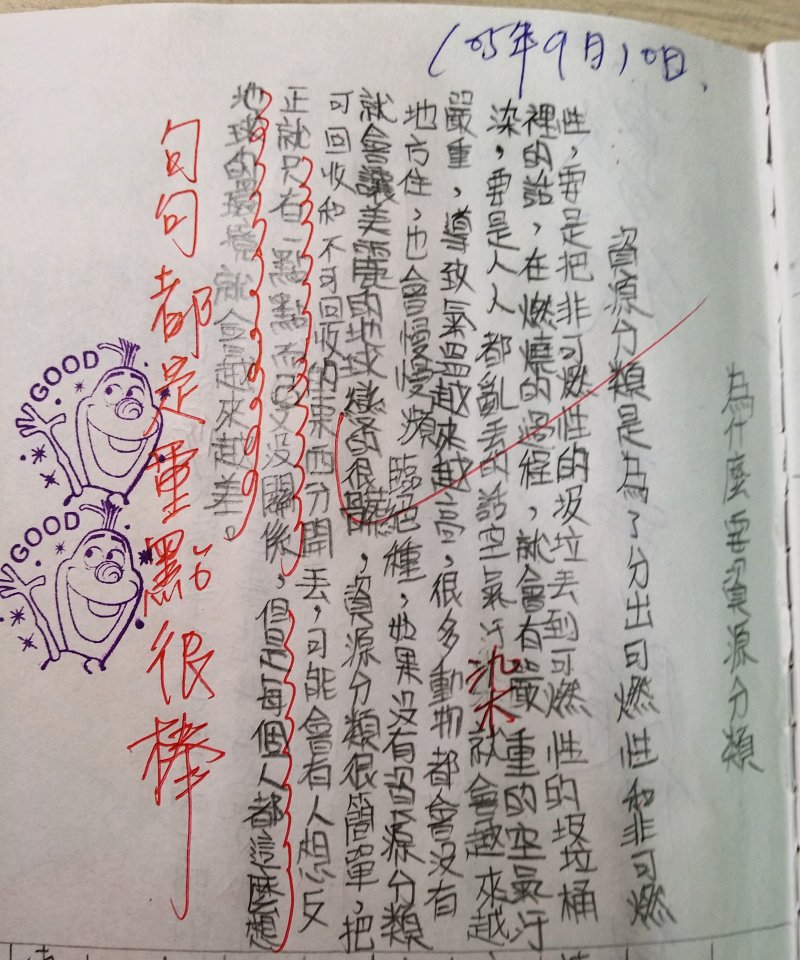 105年9月10日.
為什麼要資源分類
資源分類是為了分出可燃性和非可燃
性，要是把非可燃性的圾垃丟到可燃性的圾垃桶
裡的話，在燃燒的過程，就會有嚴重的空氣汙
染，要是人人都亂丟的話空氣汙染就會越來越
嚴重，導致氣溫越來越高，很多動物都會沒有
地方住，也會慢慢頻臨絕種，如果沒有資源分類
就會讓美麗的地球變的很髒，資源分類很簡單，把
可回收和不可回收的東西分開丟，可能會有人想反
正就只有一點點而已又沒關係，但是每個人都這麼想
地球的環境就會越來越差。
句句都是重點很棒
GOOD
GOOD